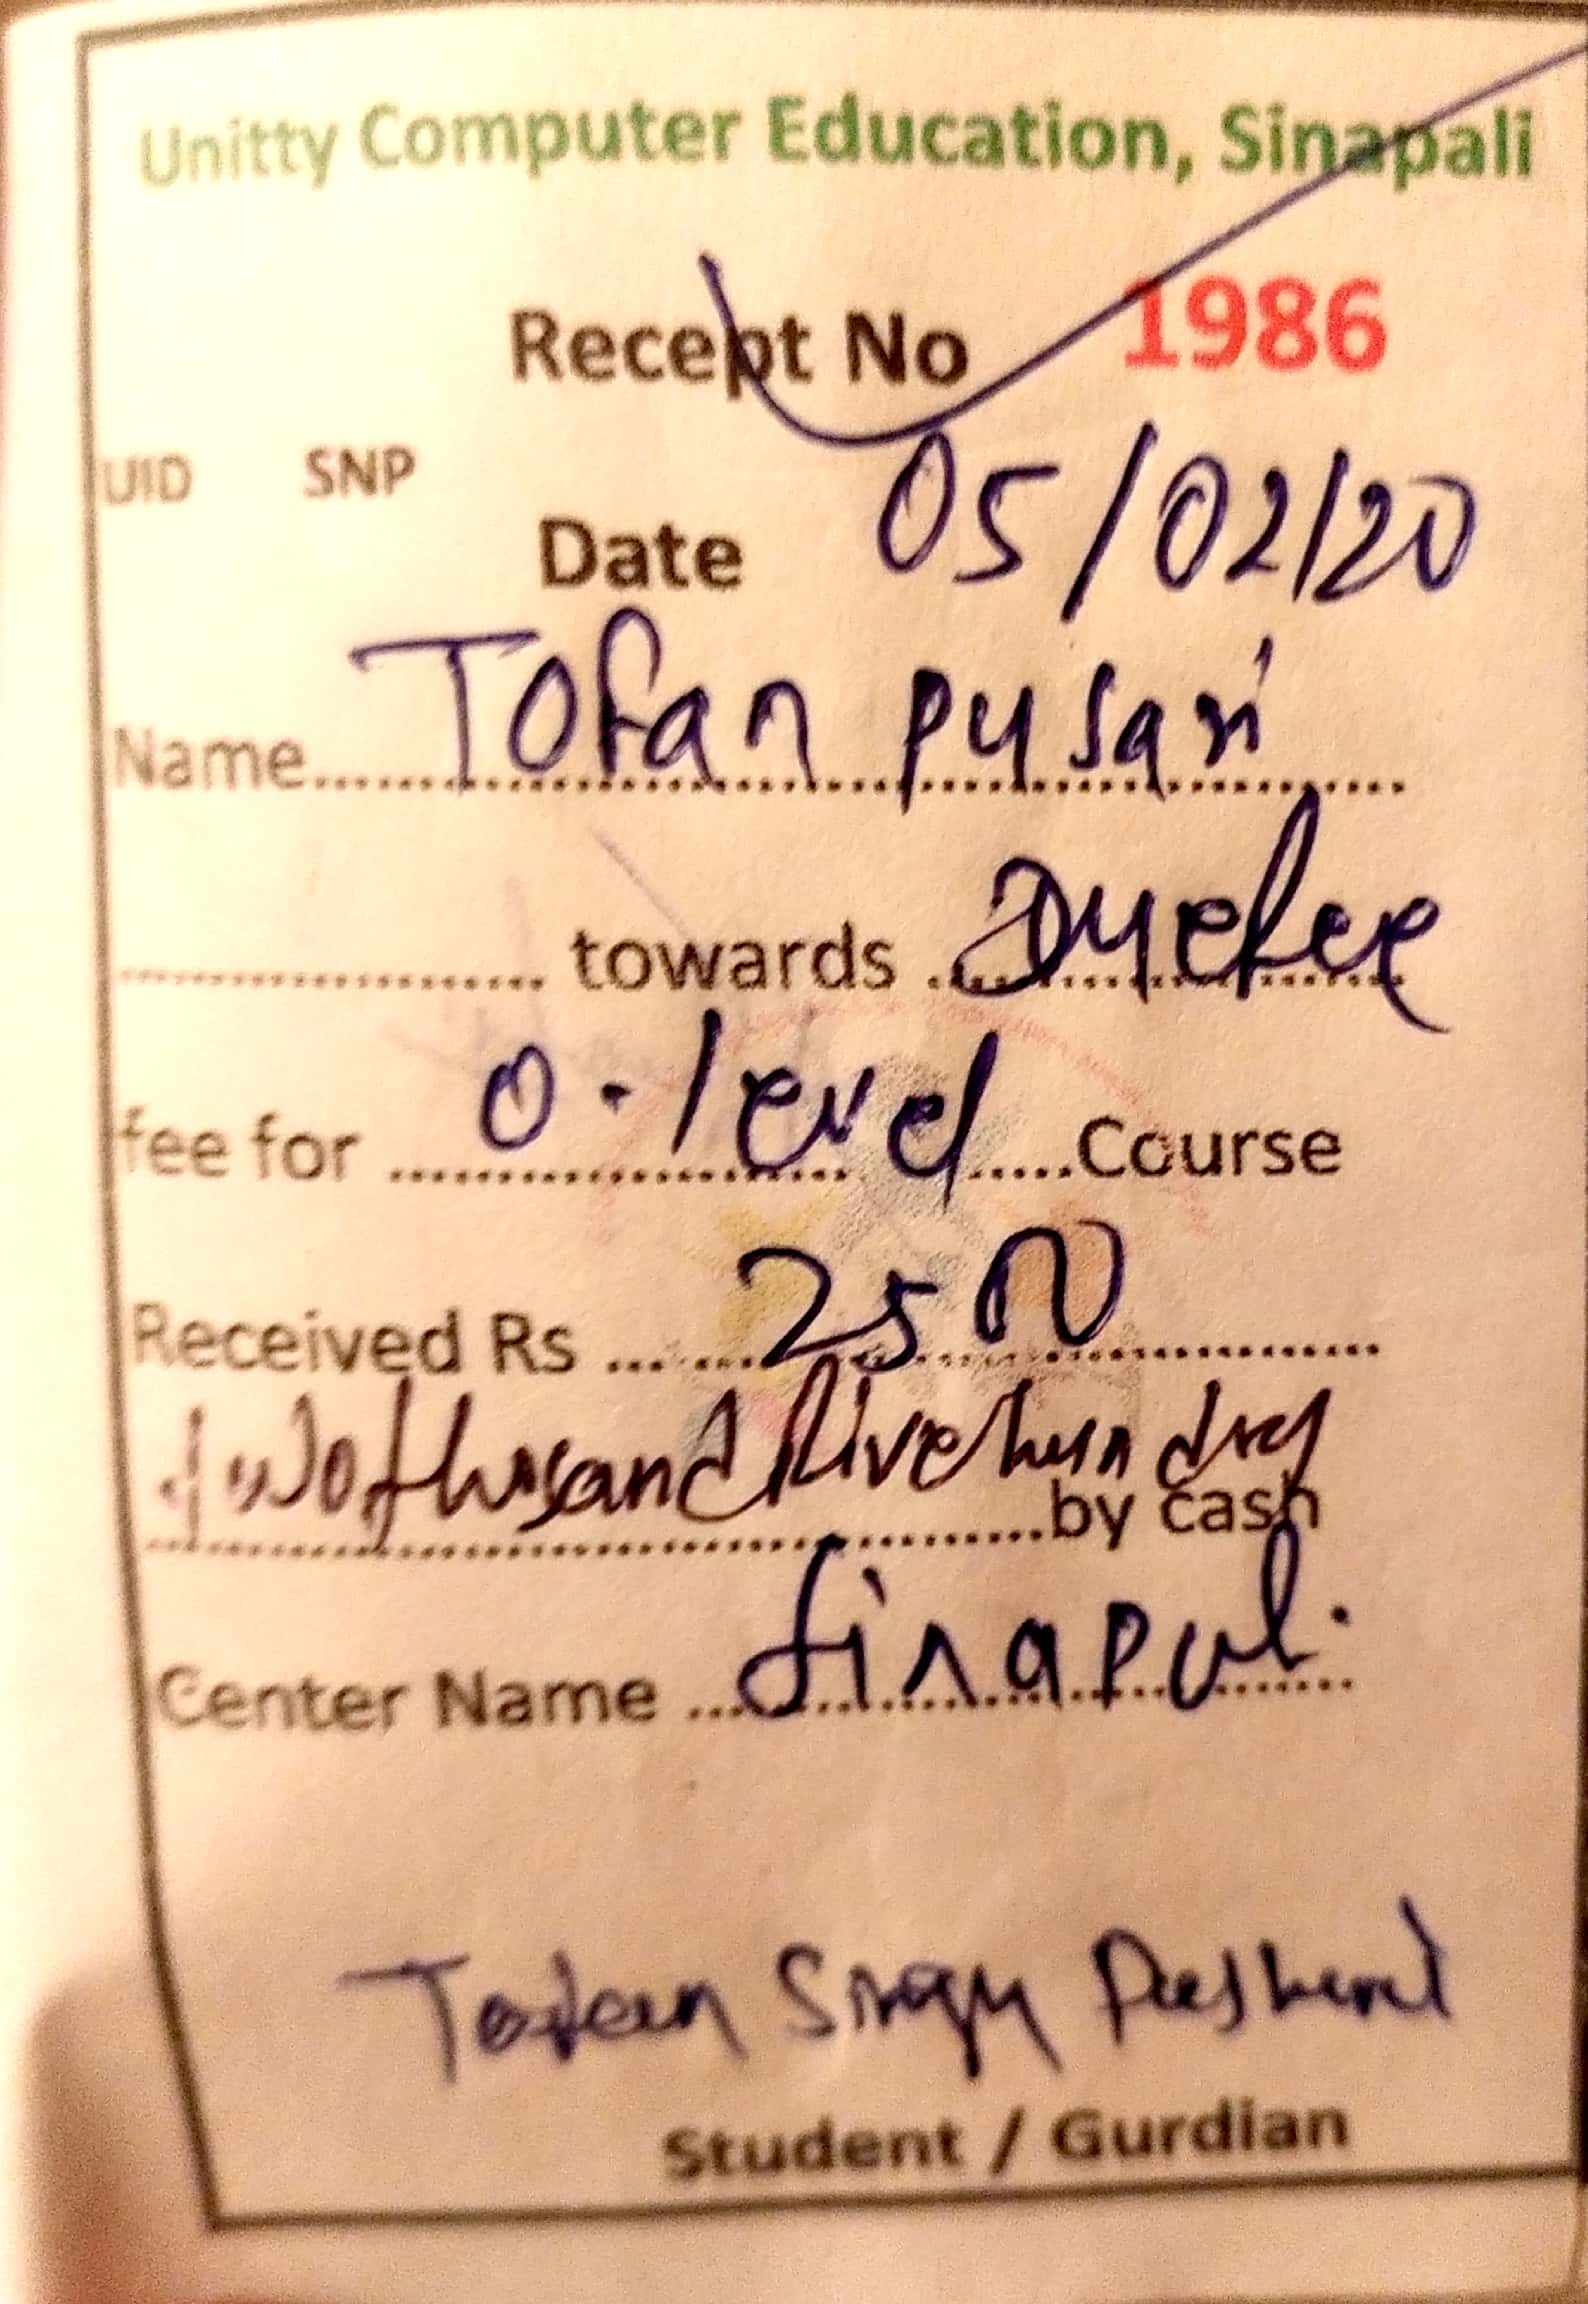 Unitty Computer Education, Sinapali
Recept No 1986
UID SNP
Date 05/02/20
Name Tofan pusari
towards Duefee
fee for O-level Course
Received Rs 2500
twothusand five hundred
by cash
Center Name Sinapali
Tofan Singh
Student / Gurdian